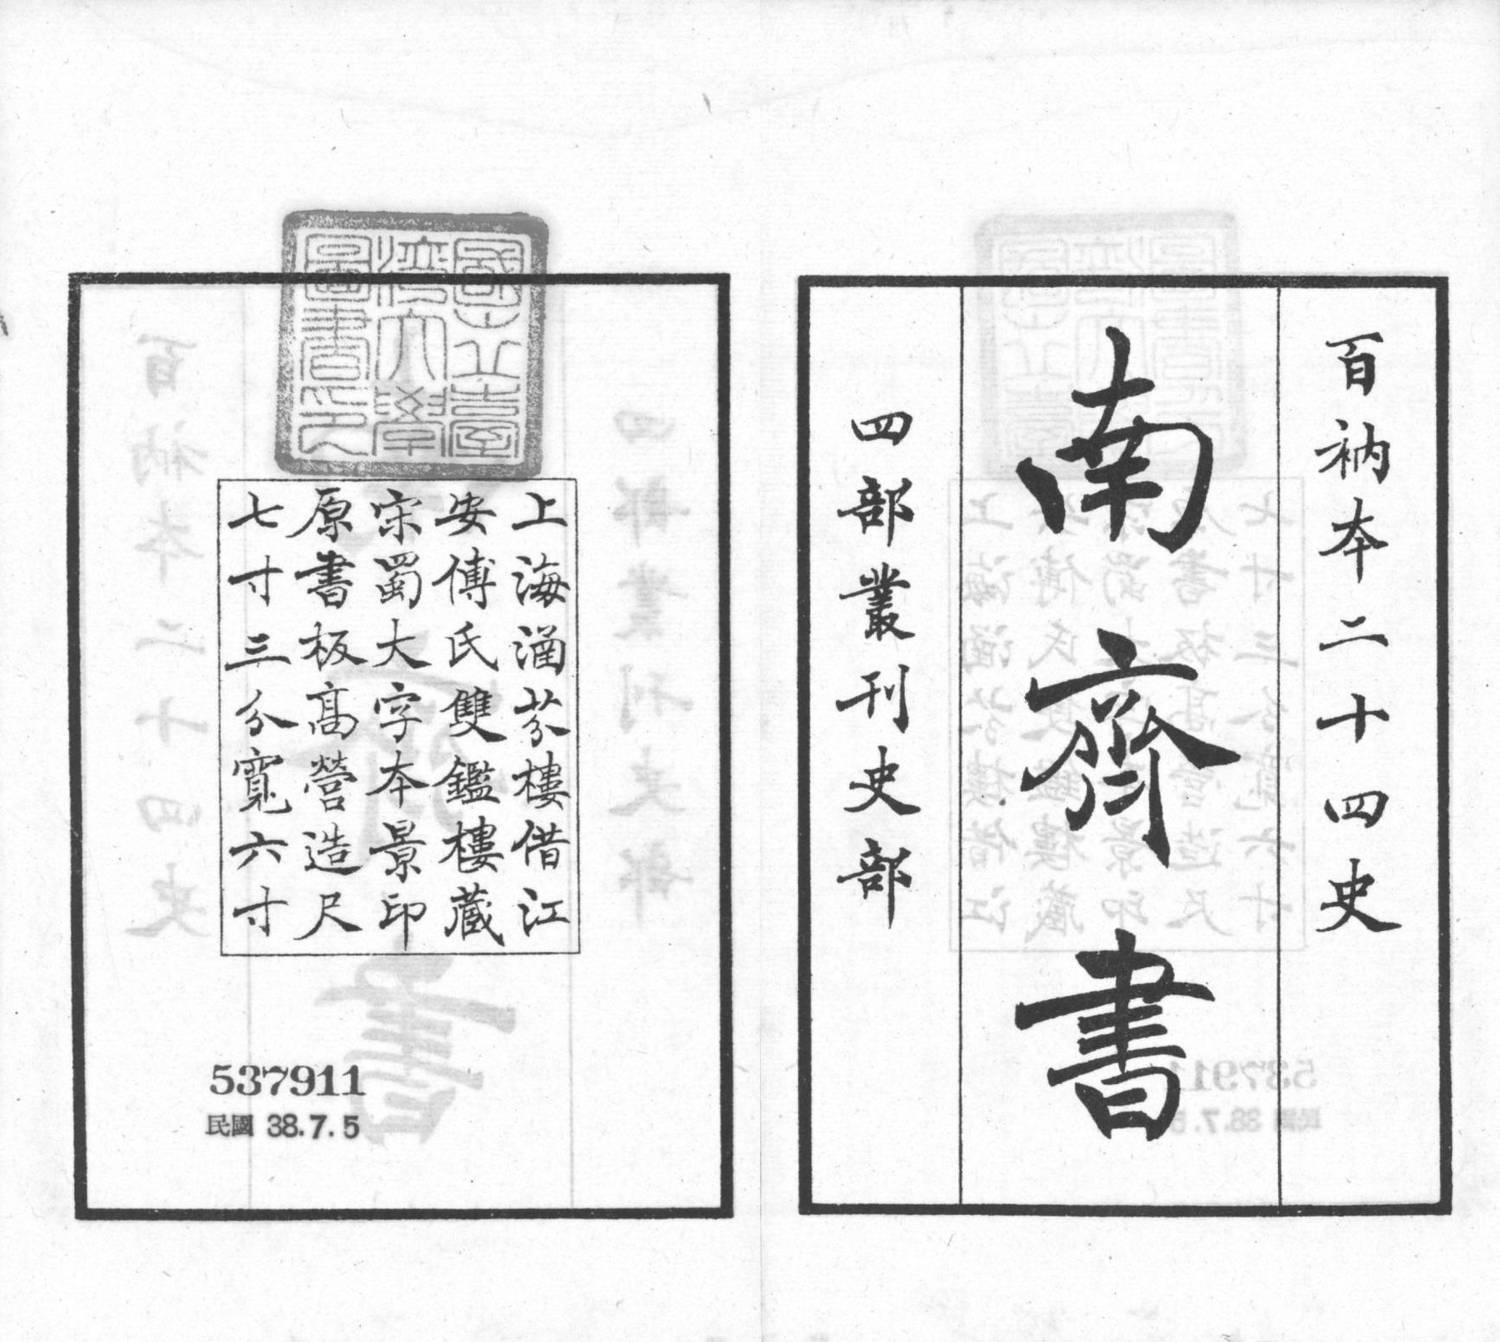 百衲本二十四史
南齊書
四部叢刊史部
國立臺
灣大學
圖書印
上海涵芬樓借江
安傅氏雙鑑樓藏
宋蜀大字本景印
原書板高營造尺
七寸三分寬六寸
537911
民國 38.7.5